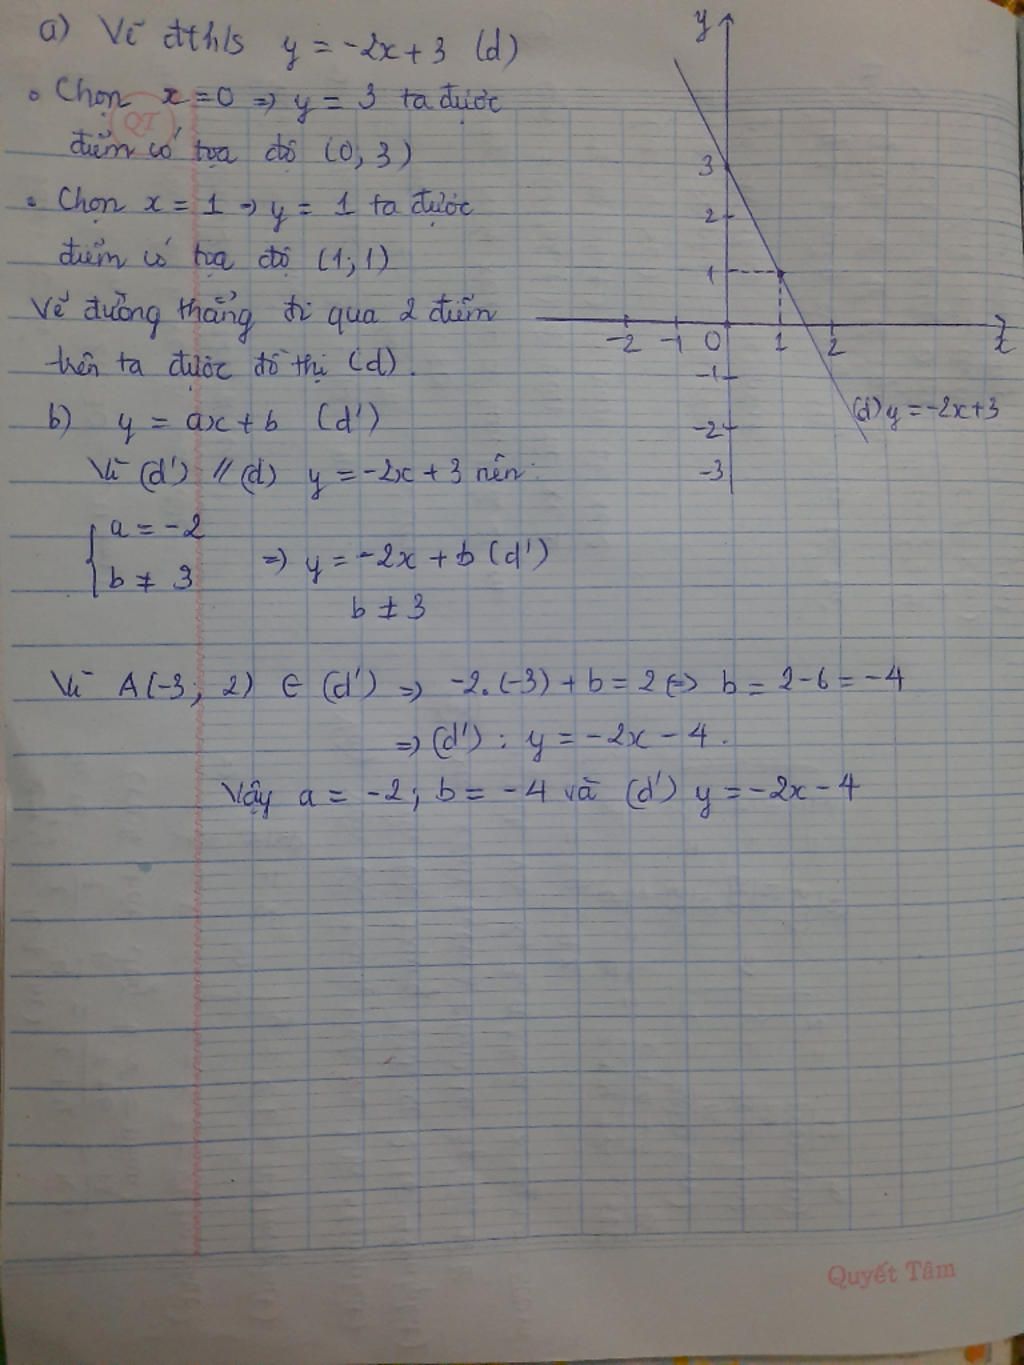 a) Vẽ đths y = -2x + 3 (d)
• Chọn x = 0 => y = 3 ta được
QT
điểm có tọa độ (0, 3)
• Chọn x = 1 => y = 1 ta được
điểm có tọa độ (1; 1)
Vẽ đường thẳng đi qua 2 điểm
trên ta được đồ thị (d).
b) y = ax + b (d')
Vì (d') // (d) y = -2x + 3 nên:
{ a = -2
b ≠ 3
=> y = -2x + b (d')
b ≠ 3
Vì A(-3; 2) ∈ (d') => -2.(-3) + b = 2 <=> b = 2-6 = -4
=> (d') : y = -2x - 4.
Vậy a = -2; b = -4 và (d') y = -2x - 4
y
3
2
1
-2 -1 0 1 2 x
-1
-2
-3
(d) y = -2x+3
Quyết Tâm